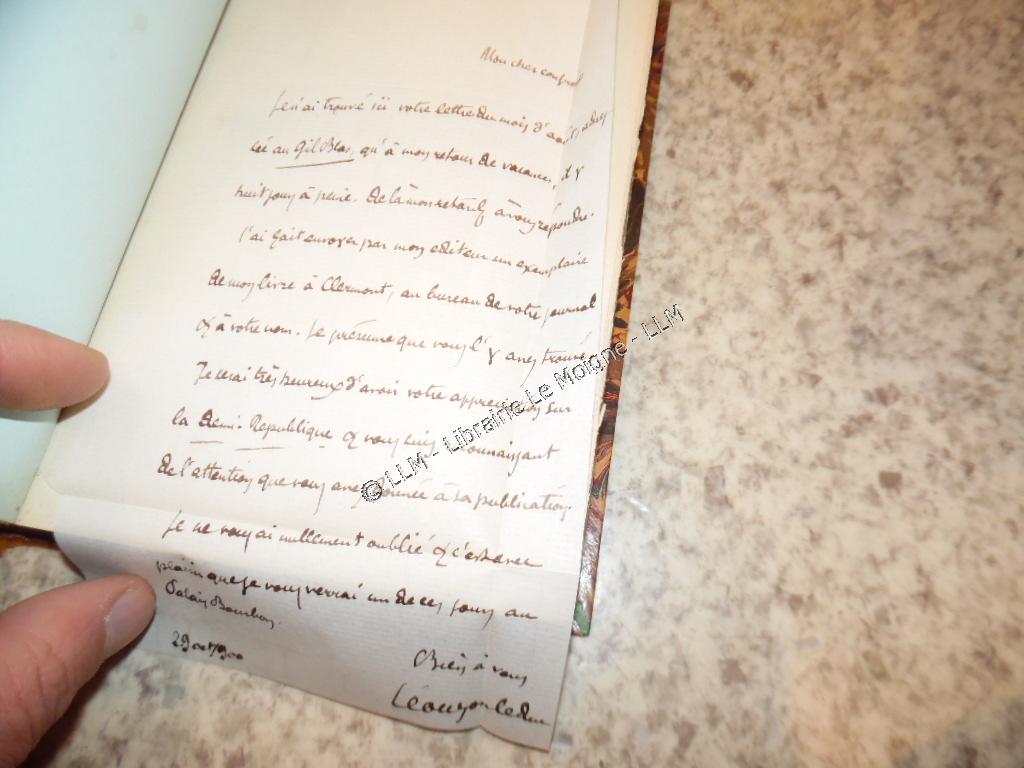 Mon cher confrère
Je n'ai trouvé ici votre lettre du mois d'août, adres
sée au Gil Blas, qu'à mon retour de vacances, il y
huit jours à peine. De là mon retard à vous répondre.
J'ai fait envoyer par mon éditeur un exemplaire
de mon livre à Clermont, au bureau de votre journal
& à votre nom. Je présume que vous l'y avez trouvé.
Je serai très heureux d'avoir votre appreciation sur
la Demi-République & vous suis reconnaissant
de l'attention que vous avez donnée à sa publication.
Je ne vous ai nullement oublié & c'est avec
plaisir que je vous verrai un de ces jours au
Palais Bourbon.
29 oct 900
Bien à vous
Léouzon le Duc
© LLM - Librairie Le Moigne - LLM